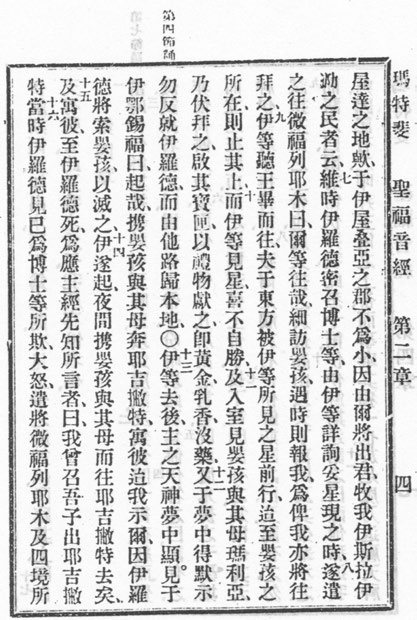 第四節誦
瑪特斐 聖福音經 第二章 四
屋達之地歟于伊屋疊亞之郡不爲小因由爾將出君牧我伊斯拉伊
泐之民者云七維時伊羅德密召博士等由伊等詳詢妥星現之時八遂遣
之往微福列耶木曰爾等往哉細訪嬰孩遇時則報我爲俾我亦將往
拜之九伊等聽王畢而往夫于東方被伊等所見之星前行迨至嬰孩之
所在則止其上十而伊等見星喜不自勝十一及入室見嬰孩與其母瑪利亞
乃伏拜之啟其寶匣以禮物獻之卽黃金乳香沒藥十二又于夢中得默示
勿反就伊羅德而由他路歸本地〇十三伊等去後主之天神夢中顯見于
伊鄂錫福曰起哉携嬰孩與其母奔耶吉撇特寓彼迨我示爾因伊羅
德將索嬰孩以滅之十四伊遂起夜間携嬰孩與其母而往耶吉撇特去矣
十五及寓彼至伊羅德死爲應主經先知所言者曰我曾召吾子出耶吉撇
特十六當時伊羅德見己爲博士等所欺大怒遣將微福列耶木及四境所